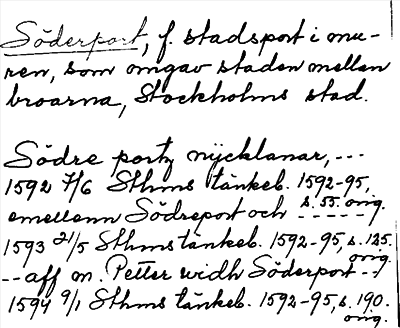 Söderport, f. stadsport i mu-
ren, som omgav staden mellan
broarna, Stockholms stad.
Södre portz nÿcklanar, ---
1592 7/6 Sthms tänkeb. 1592-95,
s. 55. orig.
emellann Södreport och -----
1593 21/5 Sthms tänkeb. 1592-95, s. 125.
orig.
-- aff m. Petter widh Söderport --
1594 9/1 Sthms tänkeb. 1592-95, s. 190.
orig.